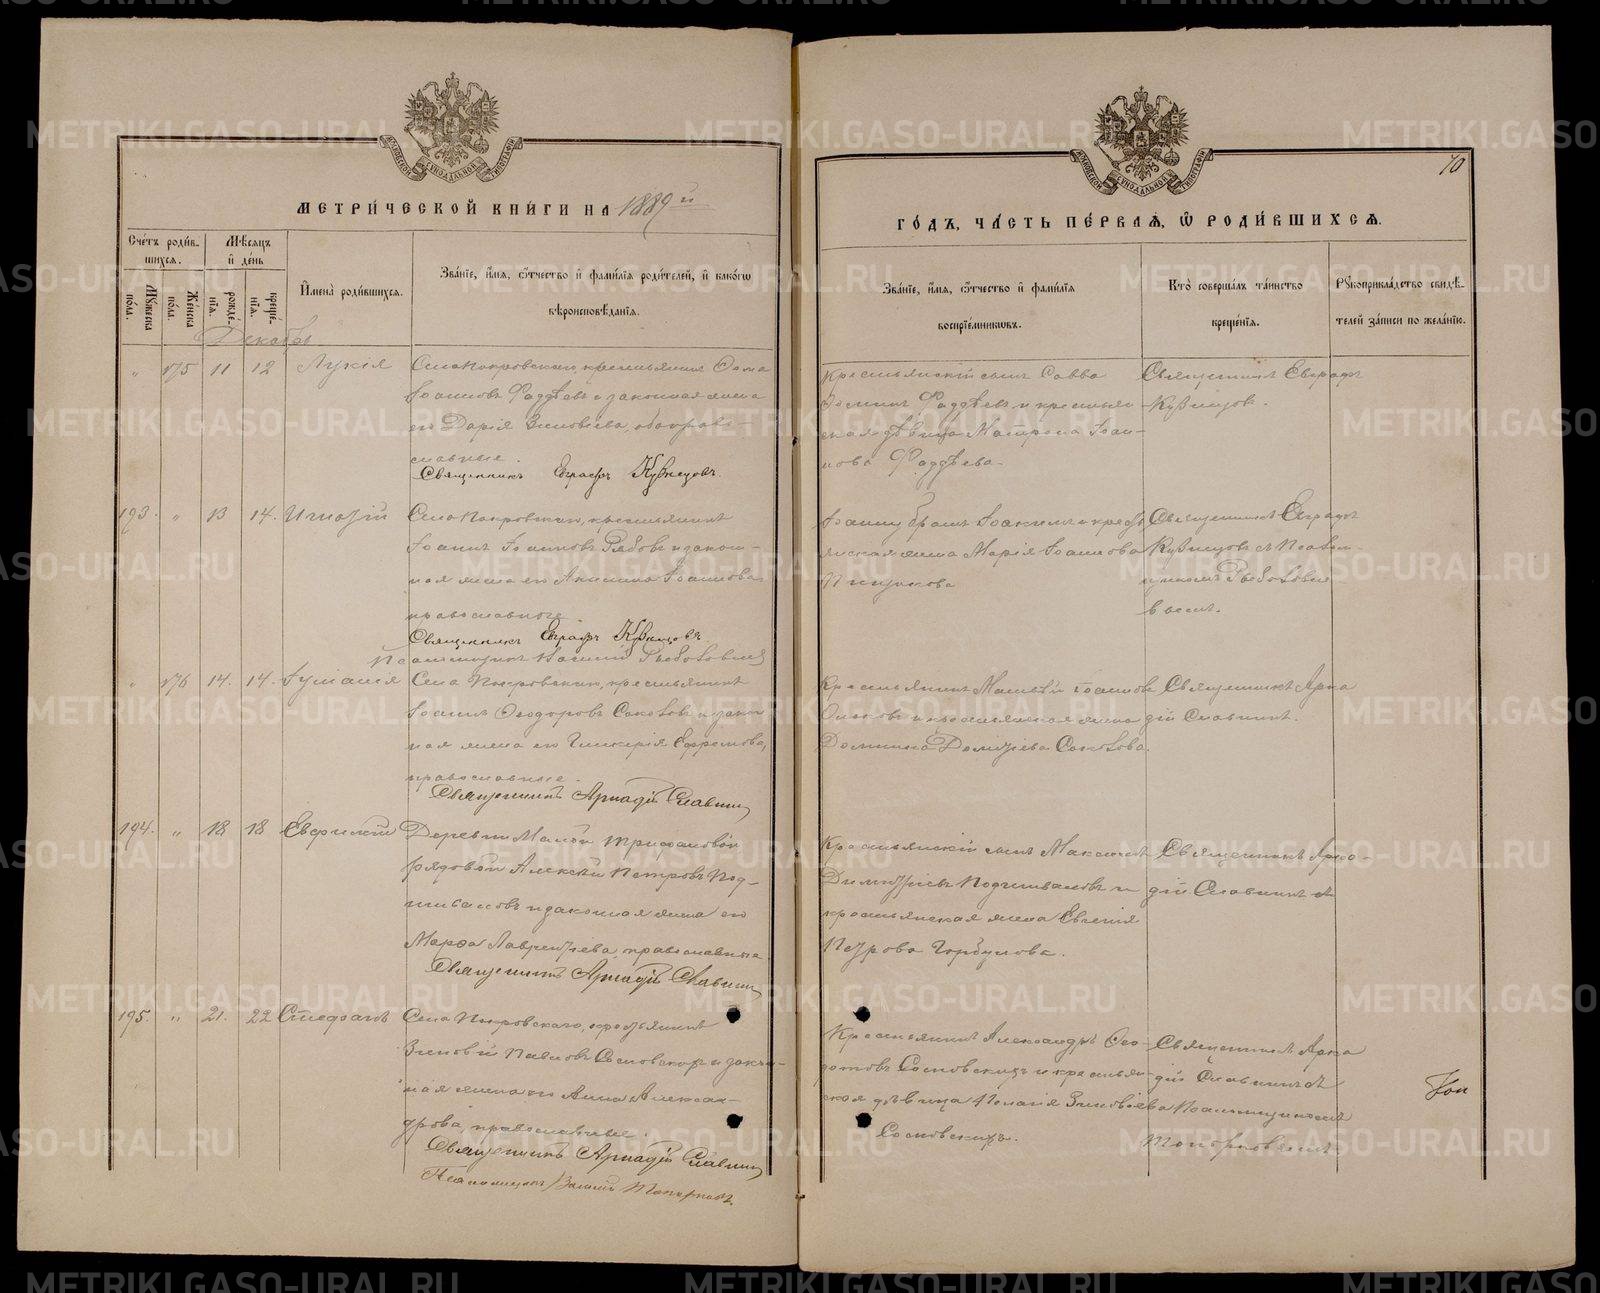 МЕТРИ́ЧЕСКОЙ КНИ́ГИ НА 1889й
Сче́тъ роди́в-
шихся.
Мѣ́сяцъ
и҆ де́нь
Му́жеска по́ла.
Же́нска по́ла.
рожде́-нїѧ.
креще́-нїѧ.
И҆мена̀ роди́вшихся.
Зва́нїе, и҆́мѧ, ѻ҆́тчество и҆ фами́лїѧ роди́телей, и҆ како́гѡ
вѣроисповѣ́данїѧ.
Декабрь
" 175 11 12 Лукія
Села Покровскаго, крестьянинъ Ѳома
Іоанновъ Фаддѣевъ и законная жена
его Дарія Зиновіева, оба право-
славные.
Священникъ Евграфъ Кузнецовъ.
193. " 13 14. Игнатій
Села Покровскаго, крестьянинъ
Іоаннъ Іоанновъ Рябовъ и закон-
ная жена его Акилина Іоаннова,
православные
Священникъ Евграфъ Кузнецовъ
Псаломщикъ
" 176 14. 14. Іуліанія
Села Покровскаго, крестьянинъ
Іоаннъ Ѳеодоровъ Соковъ и закон
ная жена его Гликерія Ефремова,
православные.
Священникъ Аркадій Славнинъ
194. " 18 18 Евфимій
Деревни Малой Трифановой
рядовой Алексѣй Петровъ Под-
шиваловъ и законная жена его
Марѳа Лаврентіева, православные
Священникъ Аркадій Славнинъ
195. " 21. 22 Стефанъ
Села Покровскаго, крестьянинъ
Зиновій Павловъ Сосновскихъ и закон-
ная жена его Анна Алексан-
дрова, православные.
Священникъ Аркадій Славнинъ
Псаломщикъ Топорковъ
70
ГО́ДЪ, ЧА́СТЬ ПЕ́РВАѦ, Ѡ҆ РОДИ́ВШИХСѦ.
Зва́нїе, и҆́мѧ, ѻ҆́тчество и҆ фами́лїѧ
воспрїе́мникѡвъ.
Кто̀ соверша́лъ та́инство
креще́нїѧ.
Рꙋкоприкла́дство свидѣ́-
телей за́писи по жела́нїю.
Крестьянскій сынъ Савва
Ѳоминъ Фаддѣевъ и крестьян
ская дѣвица Матрона Іоан-
нова Фаддѣева.
Священникъ Евграфъ
Кузнецовъ.
янская жена Марія Іоаннова
Священникъ Евграфъ
Кузнецовъ съ Псалом-
Крестьянинъ Матвѣй Іоанновъ
и крестьянская жена
Домника Соковова.
Священникъ Арка
дій Славнинъ.
Крестьянскій сынъ Максимъ
Димитріевъ Подшиваловъ и
крестьянская жена Евгенія
Петрова Горбунова.
Священникъ Арка-
дій Славнинъ
Крестьянинъ Александръ Ѳео-
Сосновскихъ и крестьян-
ская дѣвица Пелагія Зиновіева
Сосновскихъ.
Священникъ Арка
дій Славнинъ съ
Псаломщикомъ
Топорковымъ
METRIKI.GASO-URAL.RU